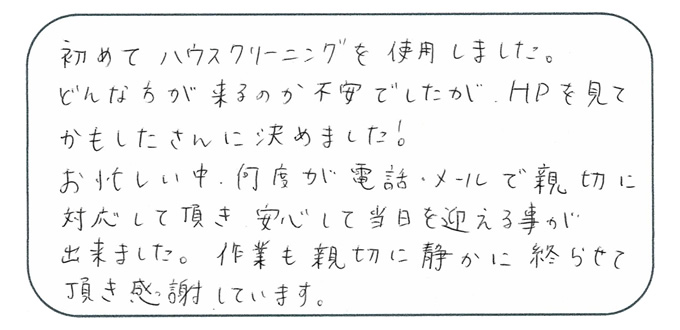 初めて ハウスクリーニングを 使用しました。
どんな方が来るのか不安でしたが、HPを見て
かもしたさんに決めました!
お忙しい中、何度か電話・メールで親切に
対応して頂き 安心して当日を迎える事が
出来ました。作業も親切に静かに終らせて
頂き感謝しています。